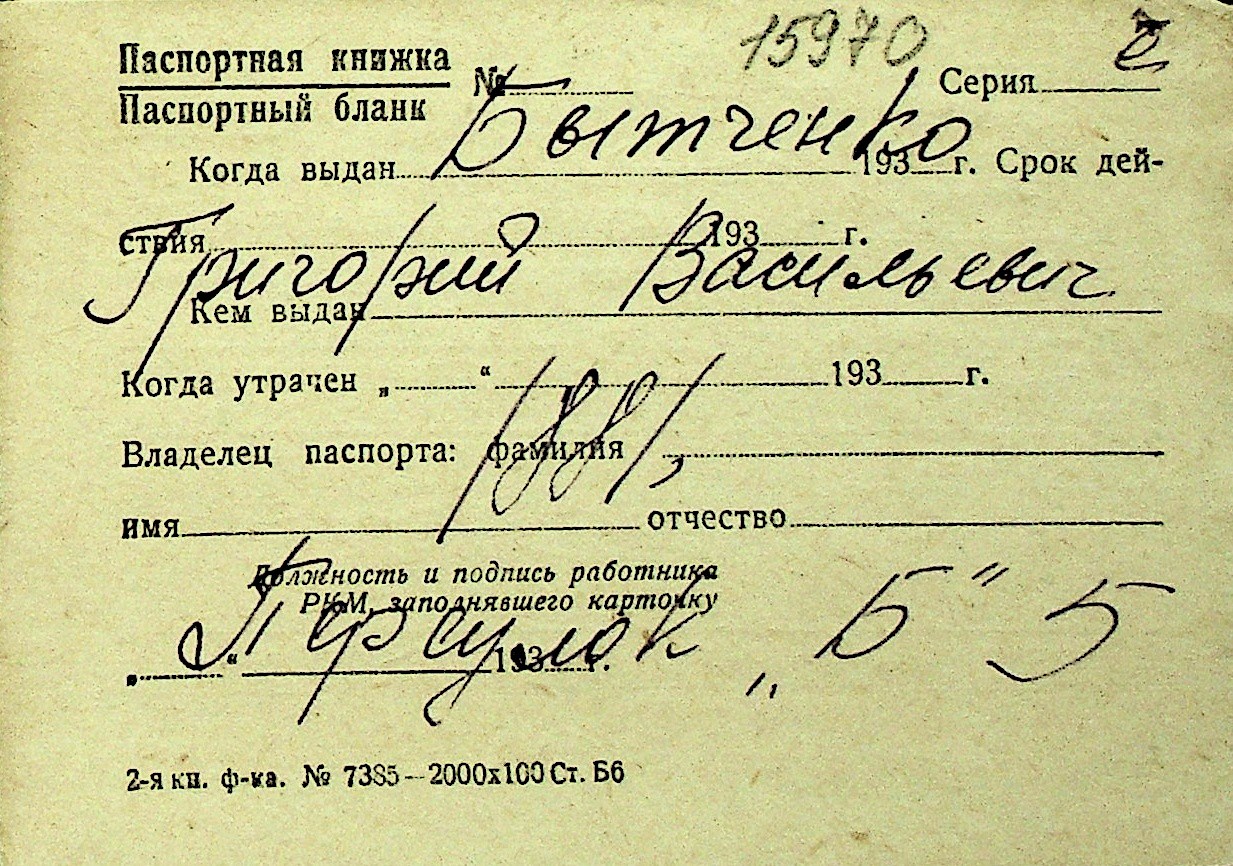 15970
2
Паспортная книжка
Паспортный бланк
№ Серия
Бытченко
Когда выдан 193 г. Срок дей-
ствия 193 г.
Григорий Васильевич
Кем выдан
Когда утрачен „ “ 193 г.
1881,
Владелец паспорта: фамилия
имя отчество
Должность и подпись работника
РКМ, заполнявшего карточку
Переулок „Б" 5
„ “ 193 г.
2-я кн. ф-ка. № 7385—2000х100 Ст. Б6